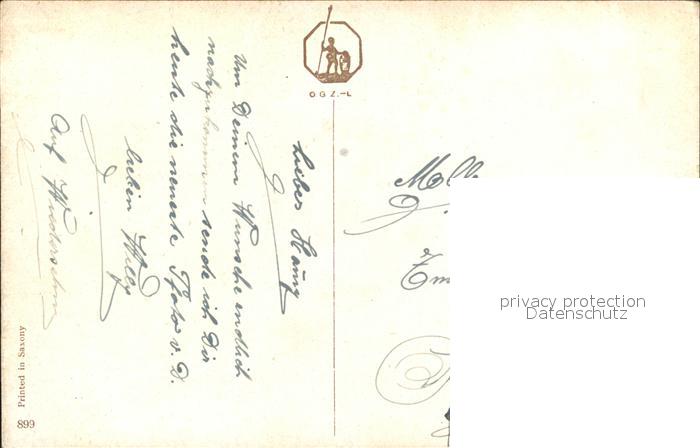 Liebes Hanz
Um Deinem Wunsche endlich
nachzukommen sende ich Dir
heute die neueste Foto v. D.
lieben Willy
Auf Wiedersehn
O G Z.-L
Printed in Saxony
899
privacy protection
Datenschutz